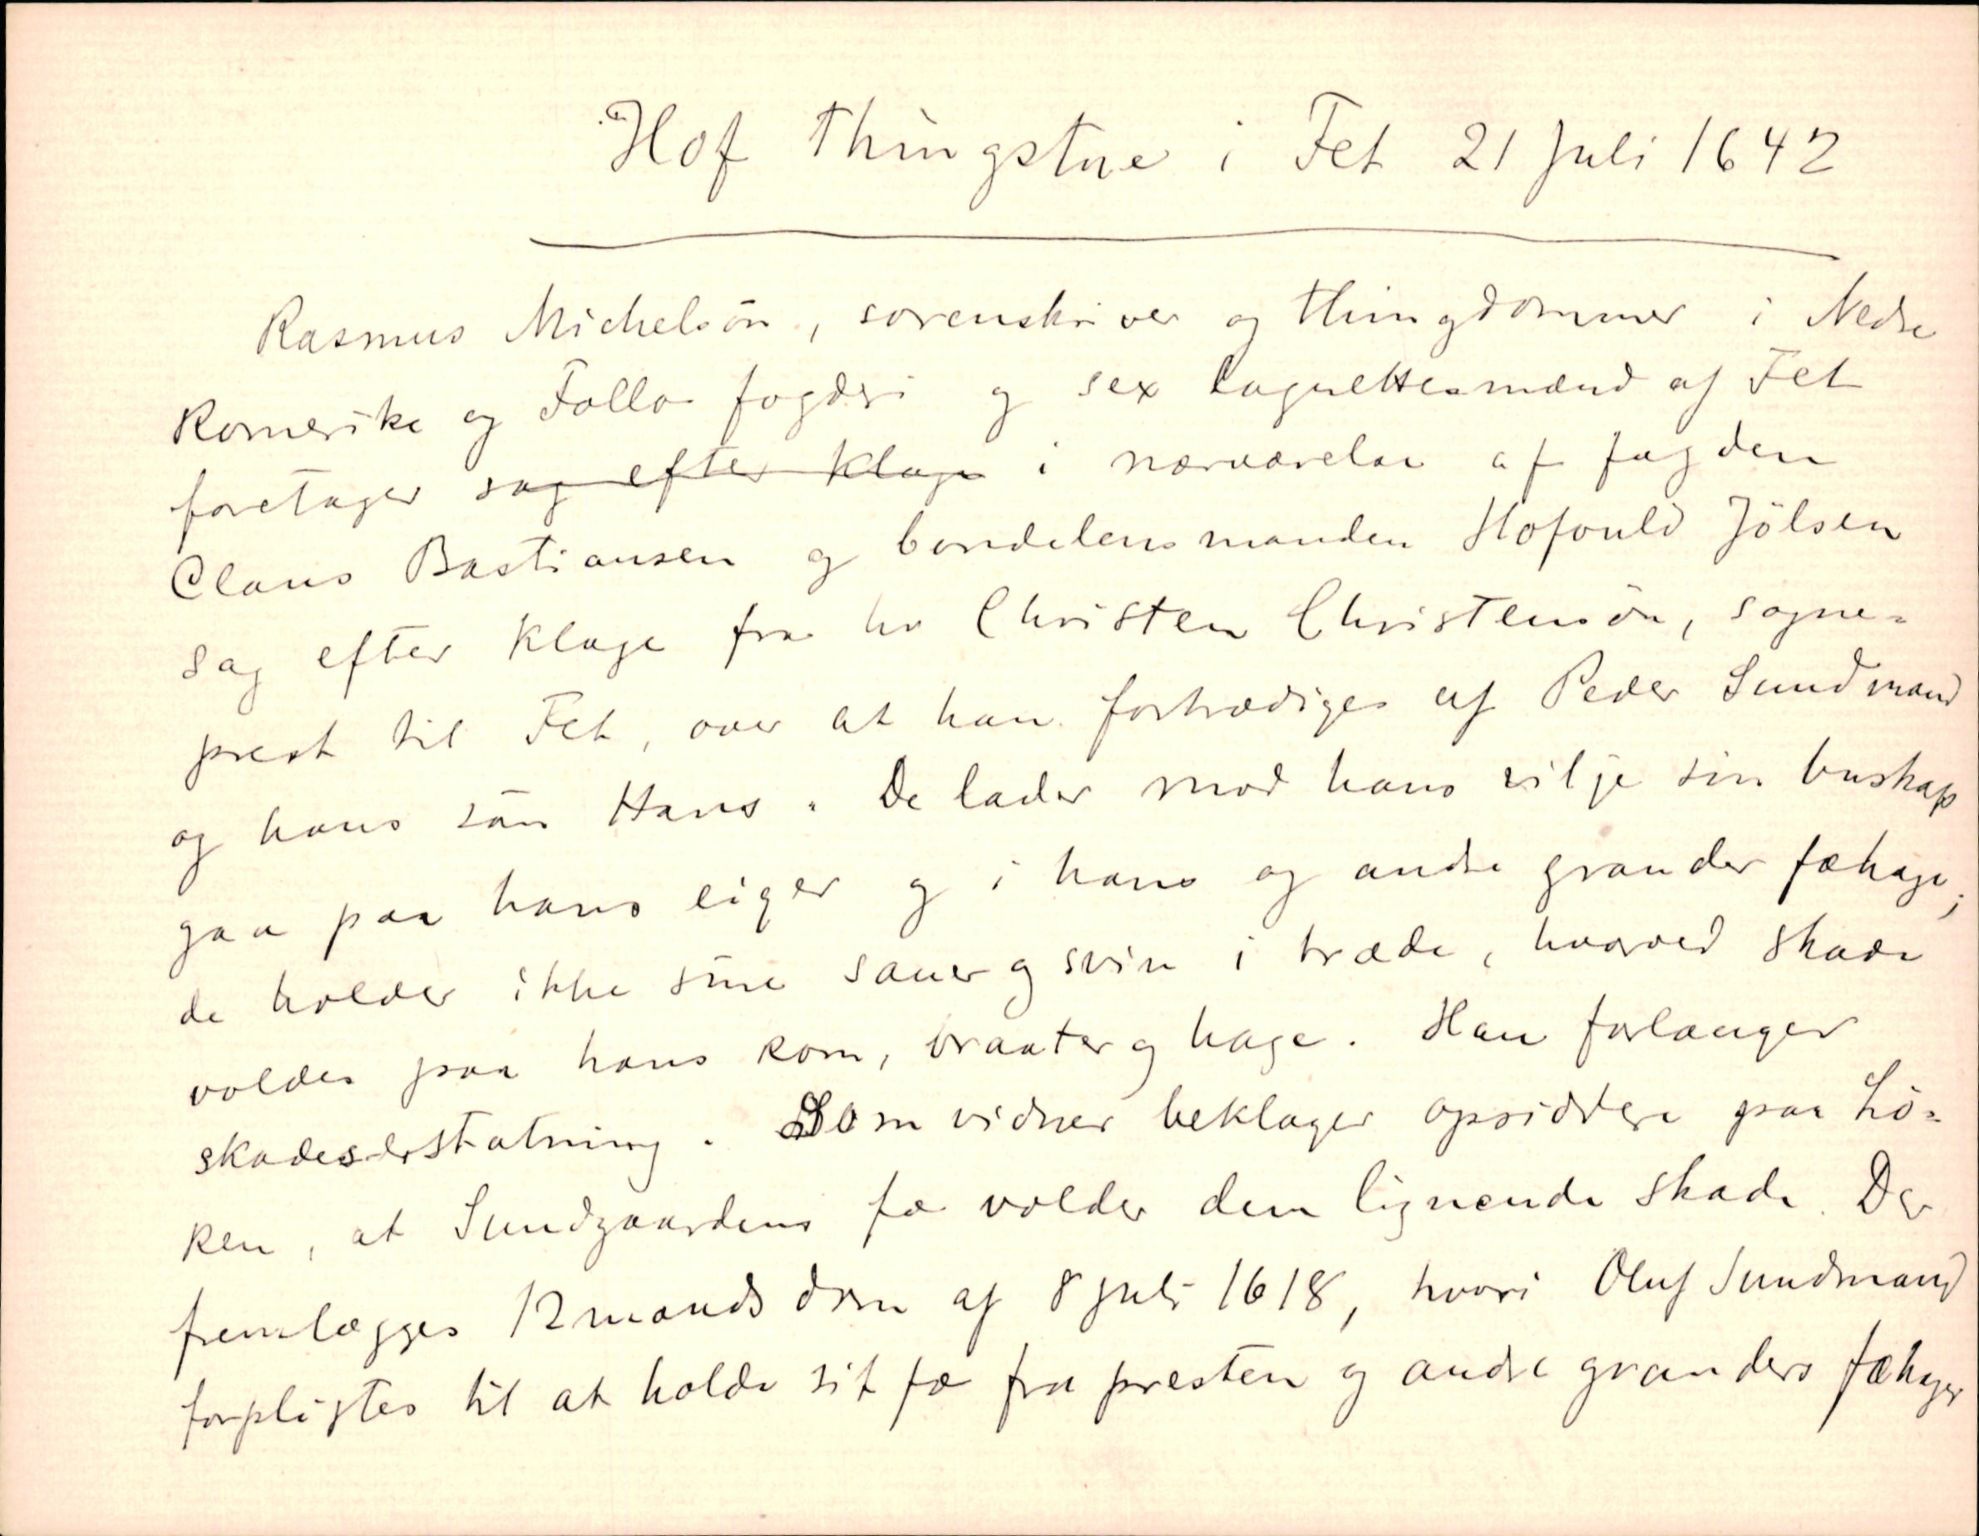 Hof Thingstue i Fet 21 Juli 1642
Rasmus Michelsön, sorenskriver og thingdommer i Nedre
Romerike og Follo fogderi og sex lagrettesmænd af Fet
foretager sag efter klage i nærværelse af fogden
Claus Bastiansen og bondelensmanden Hofvuld Jölsen
sag efter klage fra hr Christen Christensön, sogne=
prest til Fet, over at han fortrædiges af Peder Sundmand
og hans sön Hans. De lader mod hans vilje sin buskap
gaa paa hans eiger og i hans og andre grander fæhage;
de holder ikke sine sauer og svin i træde, hvorved skade
voldes paa hans korn, braater og hage. Han forlanger
skadeserstatning. Som vidner beklager opsiddere paa Lö=
ken, at Sundgaardens fæ volder dem lignende skade. Der
fremlægges 12 mands dom af 8 juli 1618, hvori Oluf Sundmand
forpligtes til at holde sit fæ fra presten og andre granders fæhager